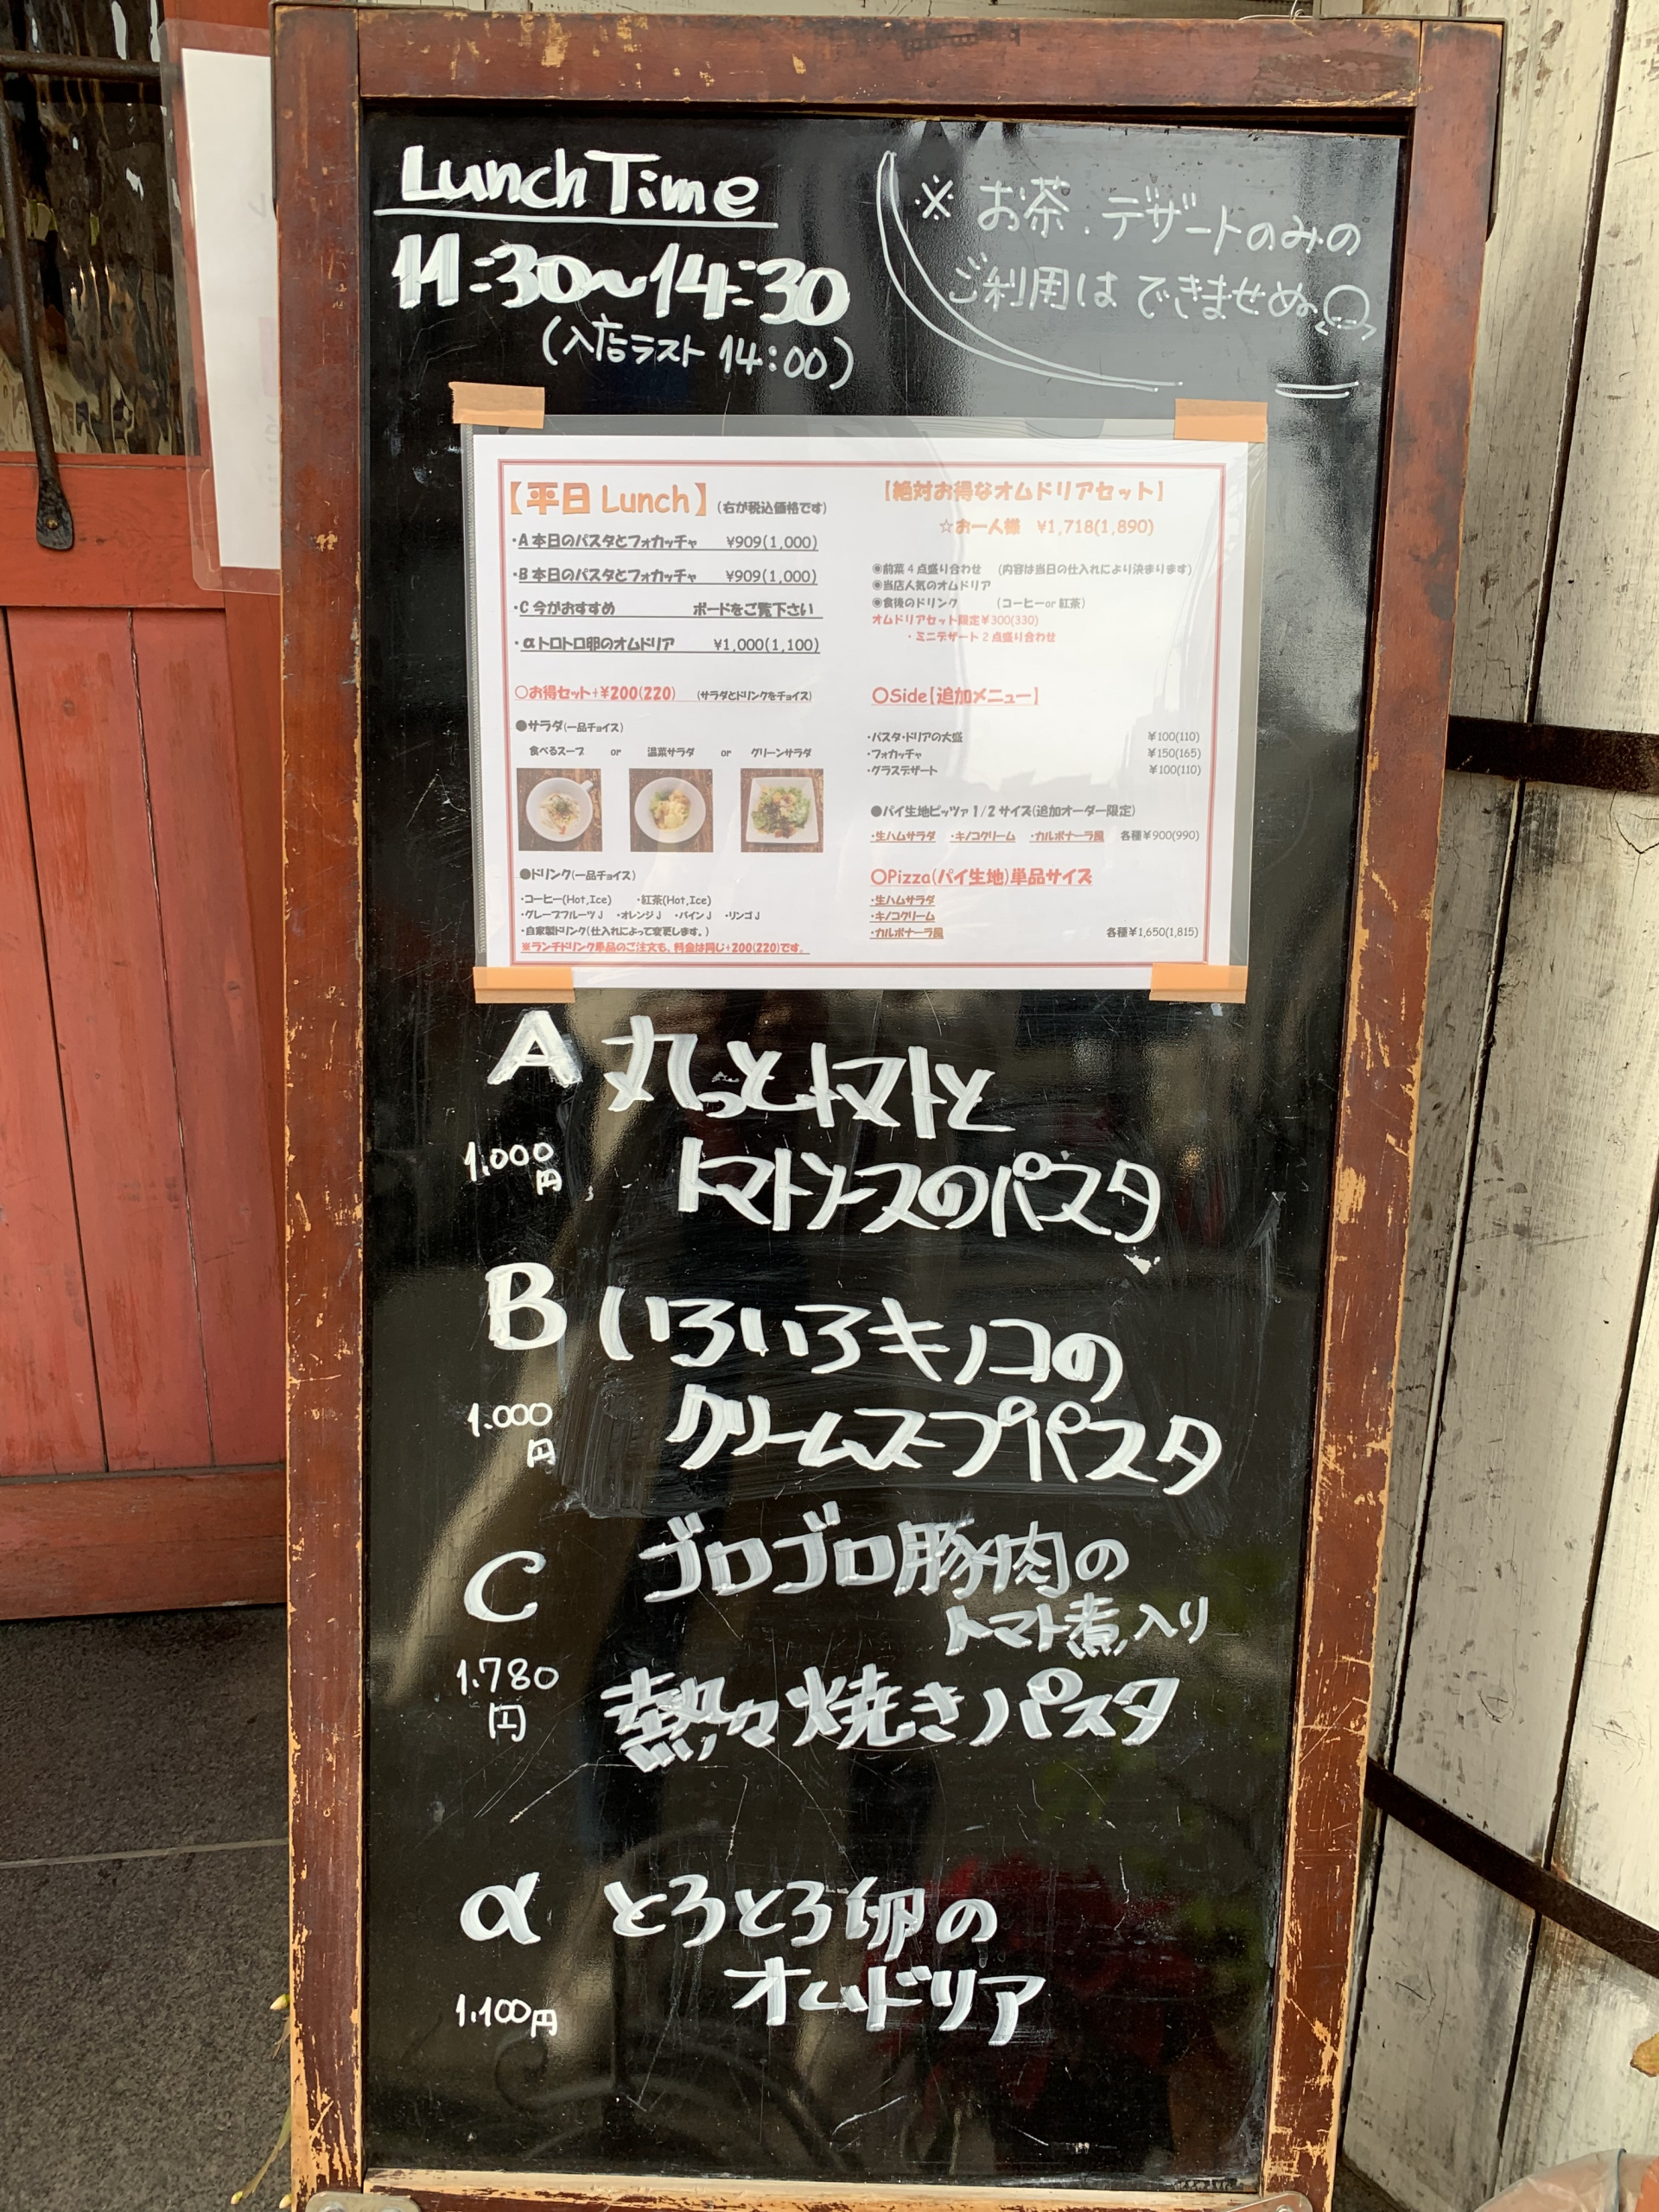 Lunch Time
11:30〜14:30
(入店ラスト 14:00)
※ お茶、デザートのみの
ご利用はできませぬ。
【平日 Lunch】(右が税込価格です)
・A 本日のパスタとフォカッチャ ¥909(1,000)
・B 本日のパスタとフォカッチャ ¥909(1,000)
・C 今がおすすめ ボードをご覧下さい
・αトロトロ卵のオムドリア ¥1,000(1,100)
○お得セット+¥200(220) (サラダとドリンクをチョイス)
●サラダ(一品チョイス)
食べるスープ or 温菜サラダ or グリーンサラダ
●ドリンク(一品チョイス)
・コーヒー(Hot,Ice) ・紅茶(Hot,Ice)
・グレープフルーツJ ・オレンジJ ・パインJ ・リンゴJ
・自家製ドリンク(仕入れによって変更します。)
※ランチドリンク単品のご注文も、料金は同じ+200(220)です。
【絶対お得なオムドリアセット】
☆お一人様 ¥1,718(1,890)
◉前菜4点盛り合わせ (内容は当日の仕入れにより決まります)
◉当店人気のオムドリア
◉食後のドリンク (コーヒーor紅茶)
オムドリアセット限定¥300(330)
・ミニデザート2点盛り合わせ
○Side【追加メニュー】
・パスタ・ドリアの大盛 ¥100(110)
・フォカッチャ ¥150(165)
・グラスデザート ¥100(110)
●パイ生地ピッツァ1/2サイズ(追加オーダー限定)
・生ハムサラダ ・キノコクリーム ・カルボナーラ風 各種¥900(990)
○Pizza(パイ生地)単品サイズ
・生ハムサラダ
・キノコクリーム
・カルボナーラ風 各種¥1,650(1,815)
A 丸っとトマトと
トマトソースのパスタ
1.000円
B いろいろキノコの
クリームスープパスタ
1.000円
C ゴロゴロ豚肉の
トマト煮入り
熱々焼きパスタ
1.780円
α とろとろ卵の
オムドリア
1.100円